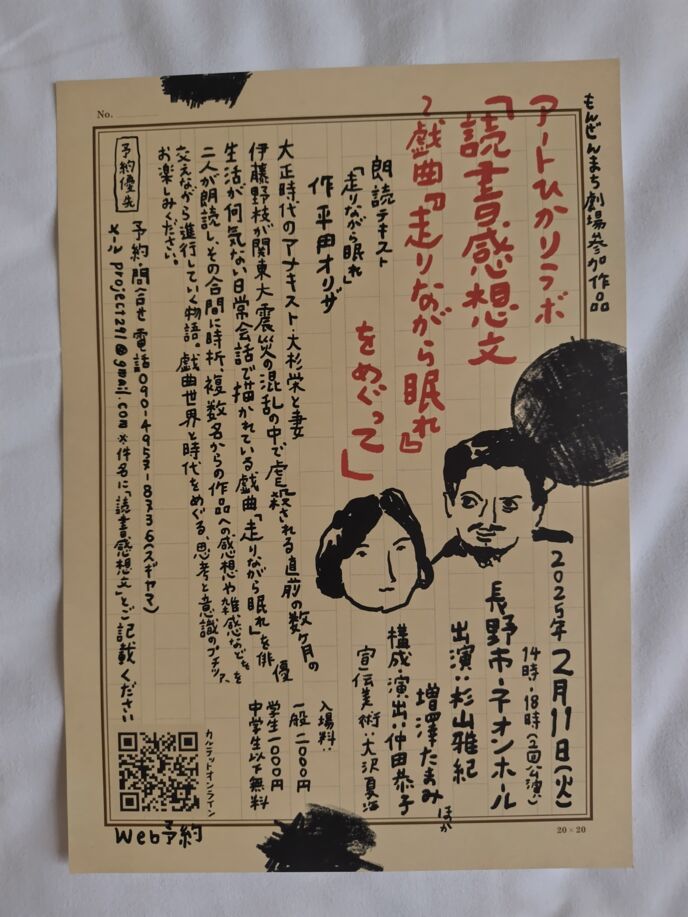 もんぜんまち劇場参加作品
アートひかりラボ
「読書感想文
〜戯曲『走りながら眠れ』
をめぐって」
朗読テキスト
「走りながら眠れ」
作 平田オリザ
大正時代のアナキスト・大杉栄と妻
伊藤野枝が関東大震災の混乱の中で虐殺される直前の数ヶ月の
生活が何気ない日常会話で描かれている戯曲「走りながら眠れ」を俳優
二人が朗読し、その合間に時折、複数名からの作品への感想や雑感などを
交えながら進行していく物語。戯曲世界と時代をめぐる、思考と意識のプチツアー、
お楽しみください。
予約優先
予約問合せ 電話 090-4957-8736(スギヤマ)
メール project1291@gmail.com ※件名に「読書感想文」とご記載ください
2025年 2月11日(火)
14時・18時(二回公演)
長野市・ネオンホール
出演:杉山雅紀
増澤たまみ ほか
構成・演出:仲田恭子
宣伝美術:大沢夏海
入場料:
一般 二〇〇〇円
学生一〇〇〇円
中学生以下無料
カルテットオンライン
Web予約
No.
20×20